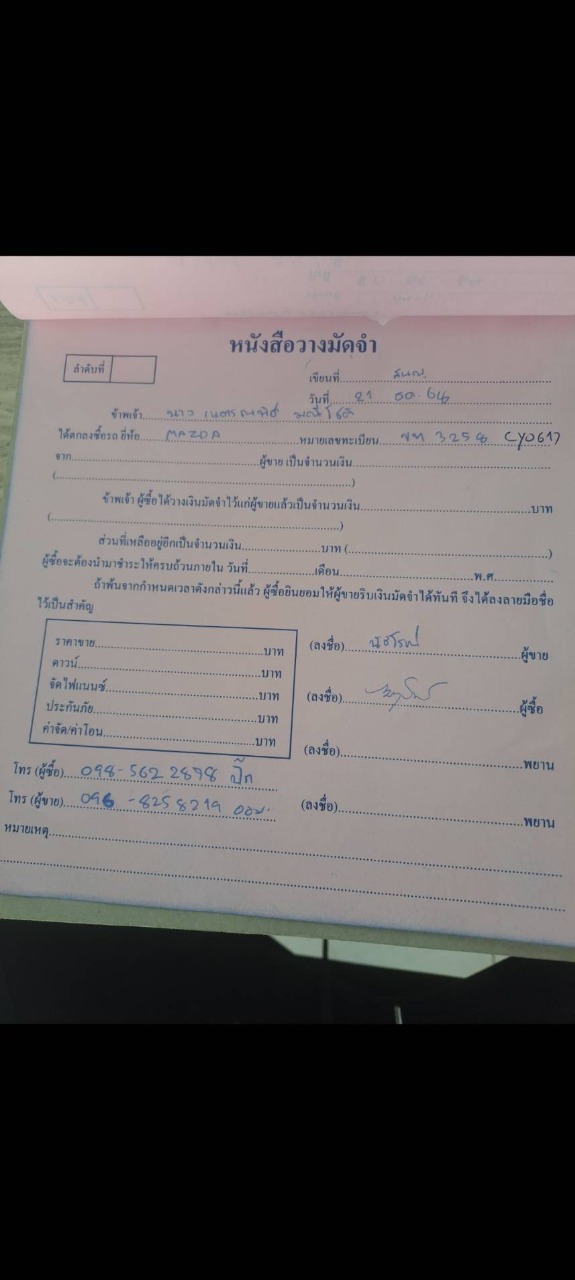 หนังสือวางมัดจำ
ลำดับที่
เขียนที่
วันที่ 21
ข้าพเจ้า นาว
ได้ตกลงซื้อรถ ยี่ห้อ MAZDA หมายเลขทะเบียน 3258 CY0617
จาก ผู้ขาย เป็นจำนวนเงิน
( )
ข้าพเจ้า ผู้ซื้อได้วางเงินมัดจำไว้แก่ผู้ขายแล้วเป็นจำนวนเงิน บาท
( )
ส่วนที่เหลืออยู่อีกเป็นจำนวนเงิน บาท ( )
ผู้ซื้อจะต้องนำมาชำระให้ครบถ้วนภายใน วันที่ เดือน พ.ศ.
ถ้าพ้นจากกำหนดเวลาดังกล่าวนี้แล้ว ผู้ซื้อยินยอมให้ผู้ขายริบเงินมัดจำได้ทันที จึงได้ลงลายมือชื่อ
ไว้เป็นสำคัญ
ราคาขาย บาท
ดาวน์ บาท
จัดไฟแนนซ์ บาท
ประกันภัย บาท
ค่าจัด/ค่าโอน บาท
(ลงชื่อ) ผู้ขาย
(ลงชื่อ) ผู้ซื้อ
(ลงชื่อ) พยาน
(ลงชื่อ) พยาน
โทร (ผู้ซื้อ) 098-562 2898 ปิ๊ก
โทร (ผู้ขาย) 096-8258219
หมายเหตุ